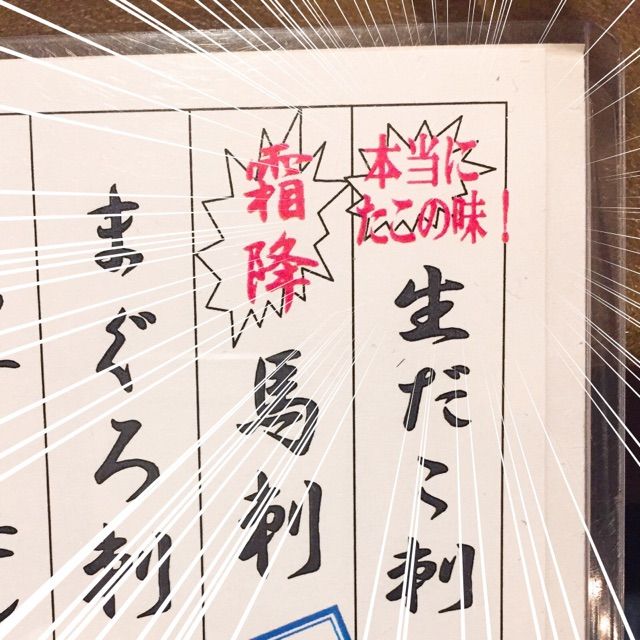 本当に
たこの味！
生だこ刺
霜降
馬刺
まぐろ刺